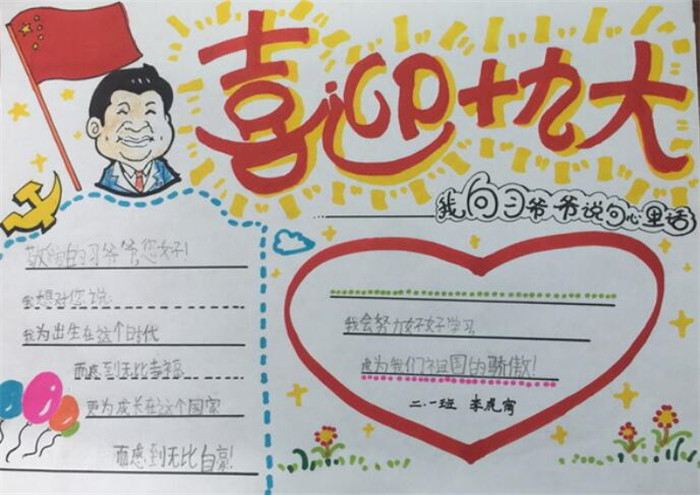 喜迎十九大
我向习爷爷说句心里话
敬爱的习爷爷,您好!
我想对您说:
我为出生在这个时代
而感到无比幸福
更为成长在这个国家
而感到无比自豪!
我会努力好好学习
成为我们祖国的骄傲!
二.一班 李虎甯